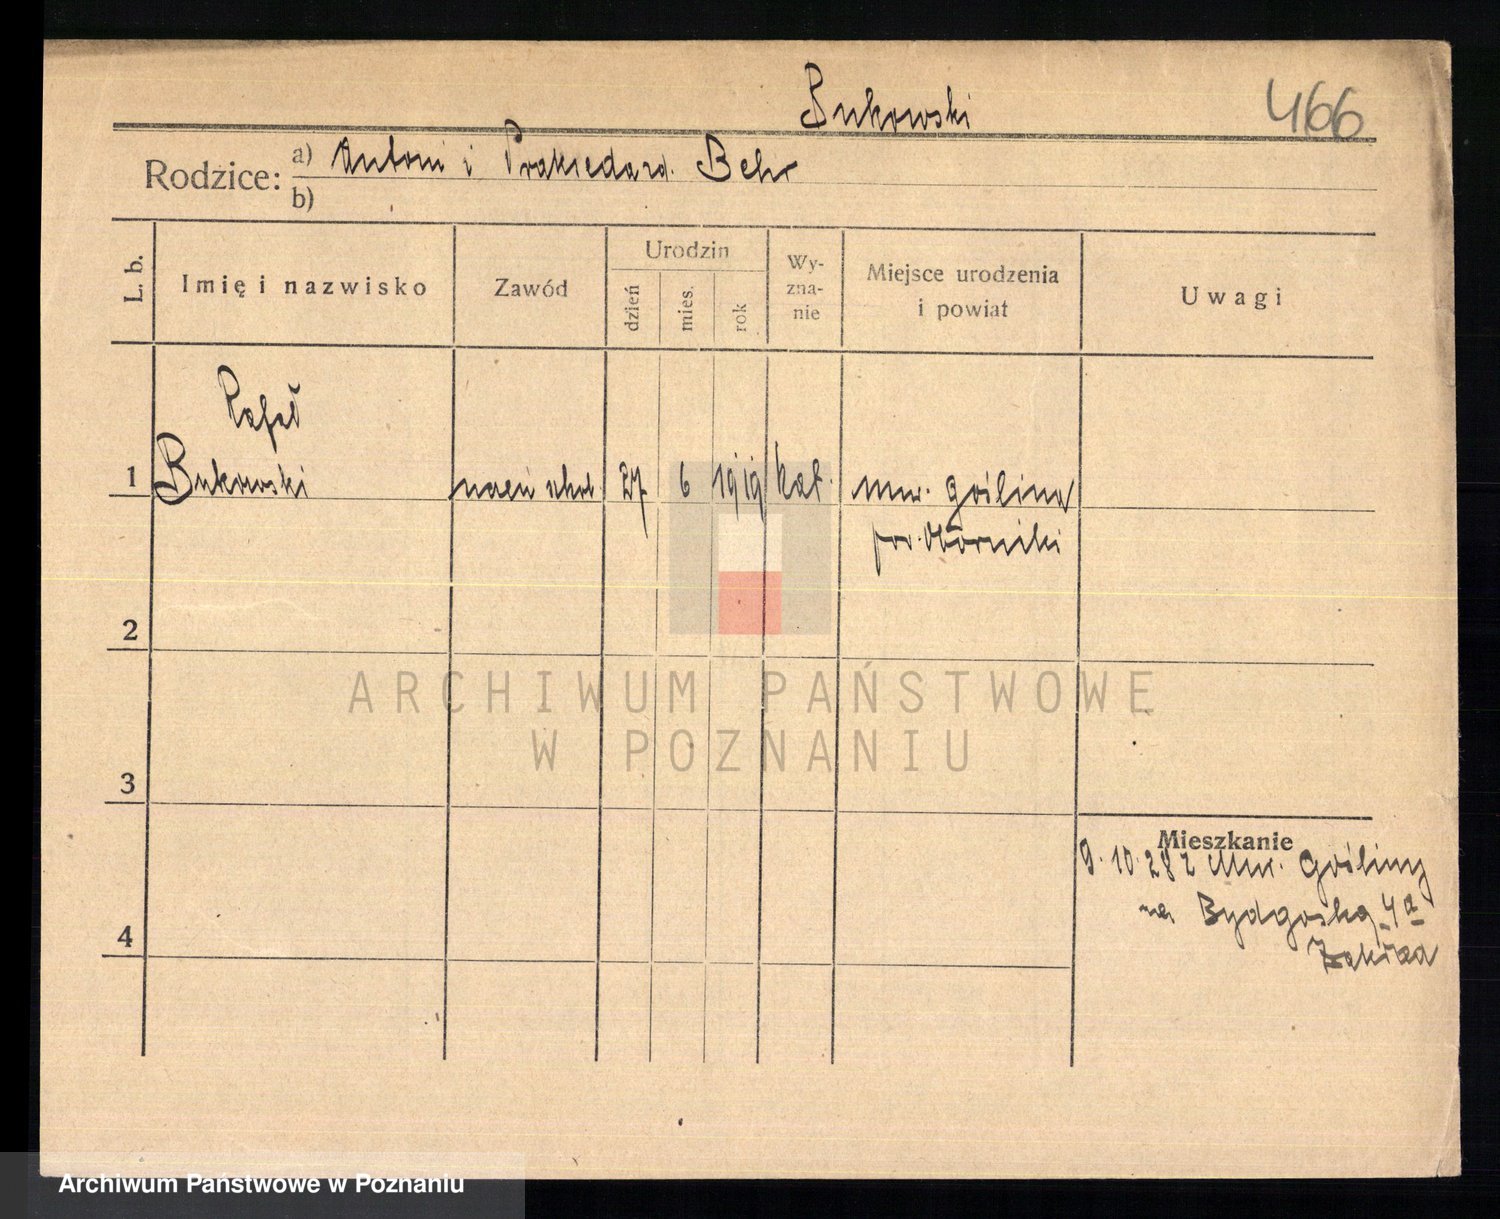 Bukowski
466
Rodzice: a) Antoni i Prakseda zd. Behr
b)
L. b.
Imię i nazwisko
Zawód
Urodzin
dzień
mies.
rok
Wy-
zna-
nie
Miejsce urodzenia
i powiat
Uwagi
Rafał
1 Bukowski uczeń szkol 27 6 1919 kat. Mur. Goślina
pow. Oborniki
2
3
Mieszkanie
9.10.28 z Mur. Gośliny
na Bydgoską 4a
4
ARCHIWUM PAŃSTWOWE
W POZNANIU
Archiwum Państwowe w Poznaniu